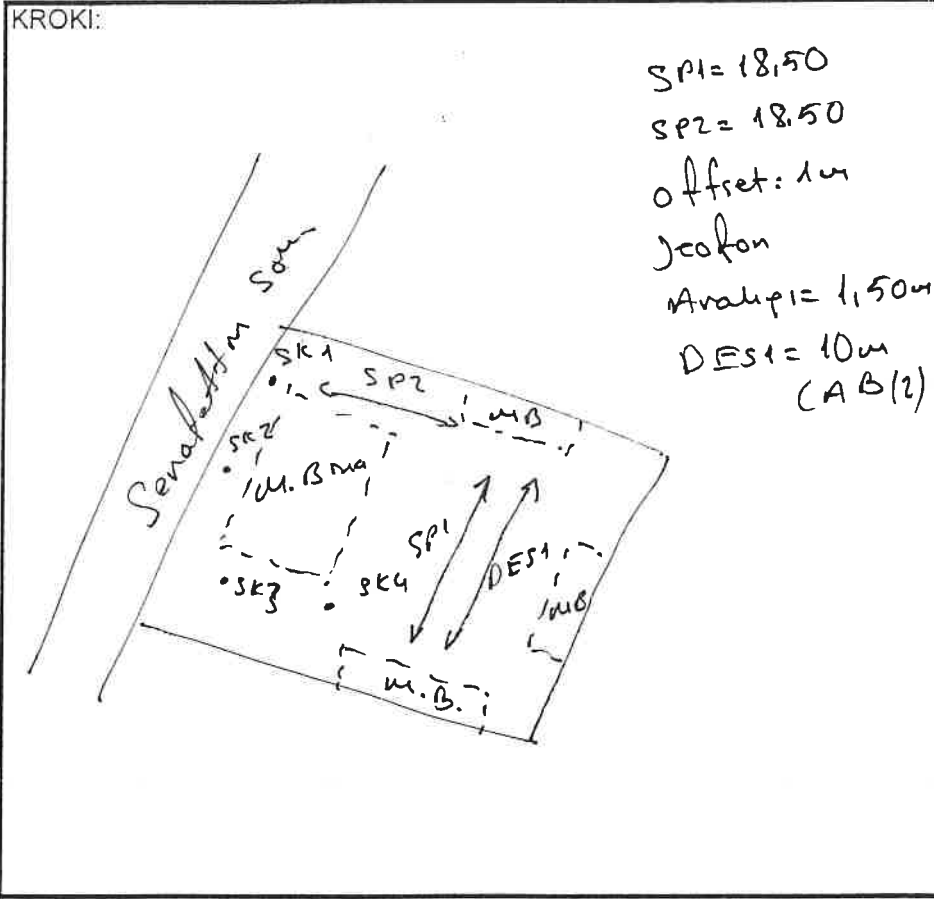 KROKİ:
SP1= 18,50
SP2= 18.50
offset: 1m
Jeofon
Aralığı= 1,50m
DES1= 10m
(AB/2)
Sok.
SK1
SP2
MB
SK2
M. Bina
SP1
DES1
SK3
SK4
MB
M.B.